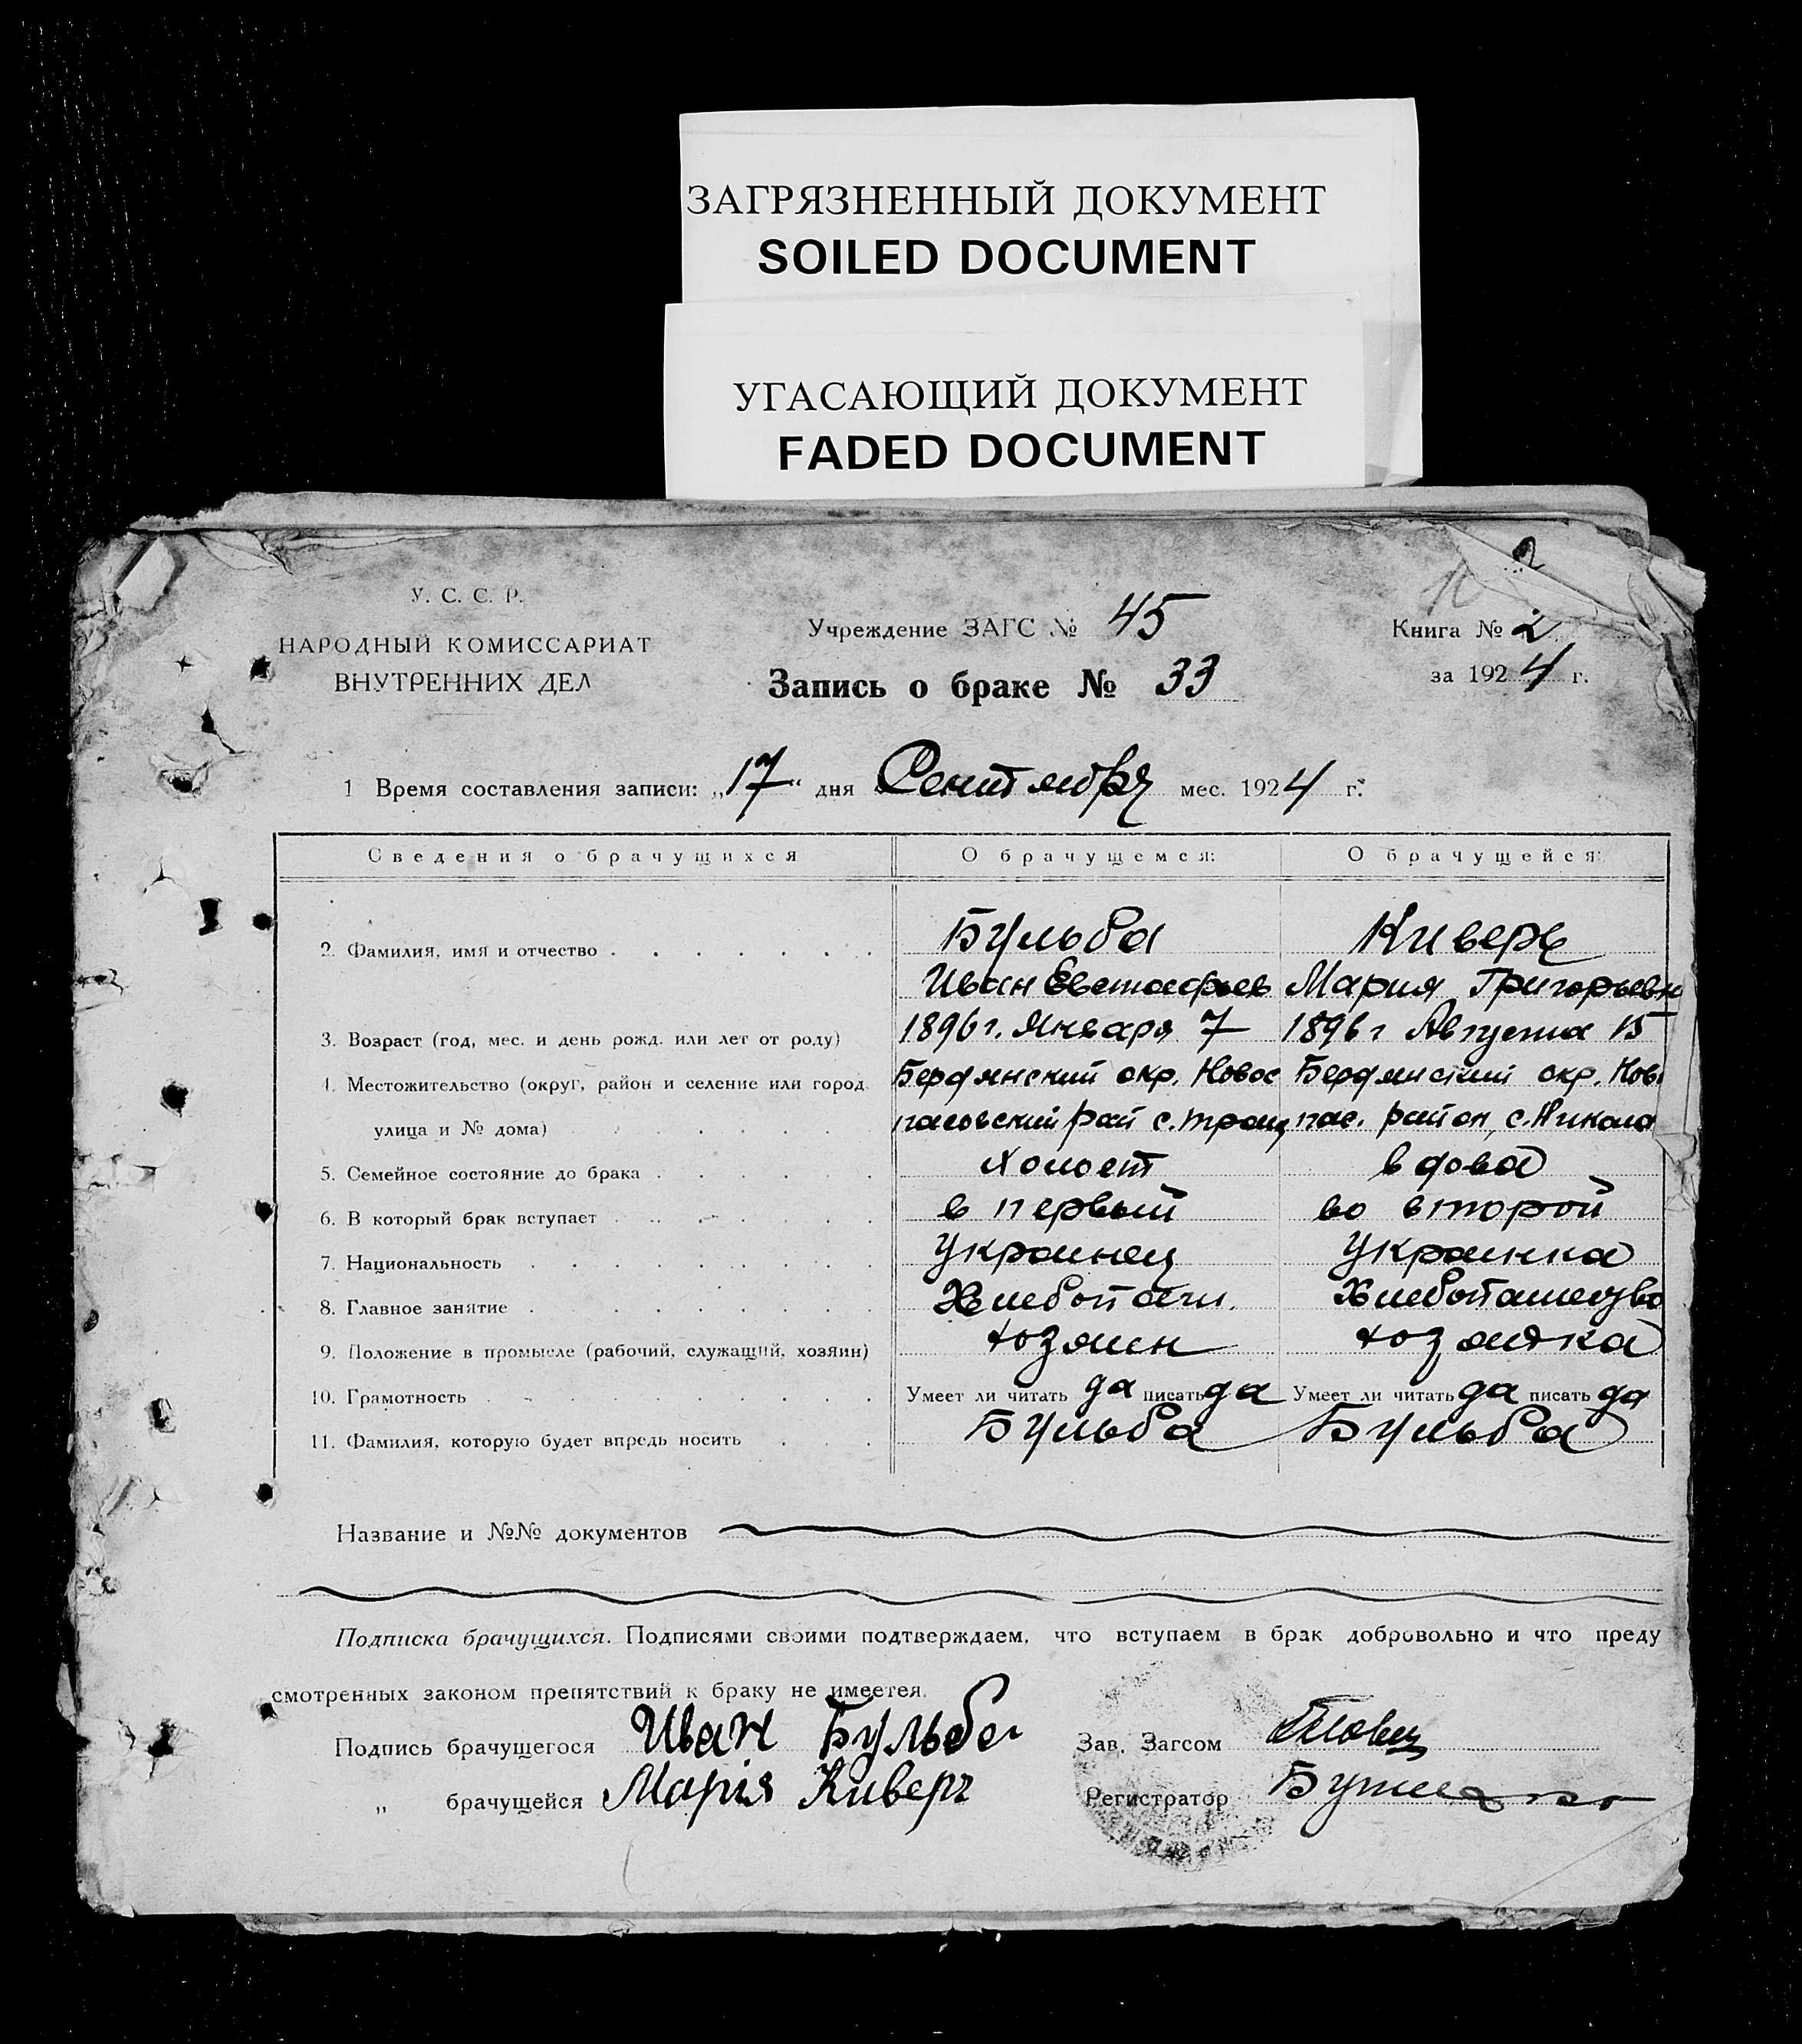 ЗАГРЯЗНЕННЫЙ ДОКУМЕНТ
SOILED DOCUMENT
УГАСАЮЩИЙ ДОКУМЕНТ
FADED DOCUMENT
2
У. С. С. Р.
НАРОДНЫЙ КОМИССАРИАТ
ВНУТРЕННИХ ДЕЛ
Учреждение ЗАГС № 45
Запись о браке № 33
Книга № 2
за 1924 г.
1 Время составления записи: „17“ дня Сентября мес. 1924 г.
Сведения о брачущихся О брачущемся: О брачущейся:
2. Фамилия, имя и отчество Бульба Киверь
Иван Евстафьев Мария Григорьевн
3. Возраст (год, мес. и день рожд. или лет от роду) 1896 г. Января 7 1896 г Августа 15
4. Местожительство (округ, район и селение или город Бердянский окр. Новос Бердянский окр. Ново
улица и № дома) пасовский рай с. Троиц пас. район, с. Никола
5. Семейное состояние до брака Холост вдова
6. В который брак вступает в первый во второй
7. Национальность Украинец Украинка
8. Главное занятие Хлебопашество
9. Положение в промысле (рабочий, служащий, хозяин) хозяин хозяйка
10. Грамотность Умеет ли читать да писать да Умеет ли читать да писать да
11. Фамилия, которую будет впредь носить Бульба Бульба
Название и №№ документов
Подписка брачущихся. Подписями своими подтверждаем, что вступаем в брак добровольно и что преду
смотренных законом препятствий к браку не имеется.
Подпись брачущегося Иван Бульба
„ брачущейся Марія Киверь
Зав. Загсом
Регистратор